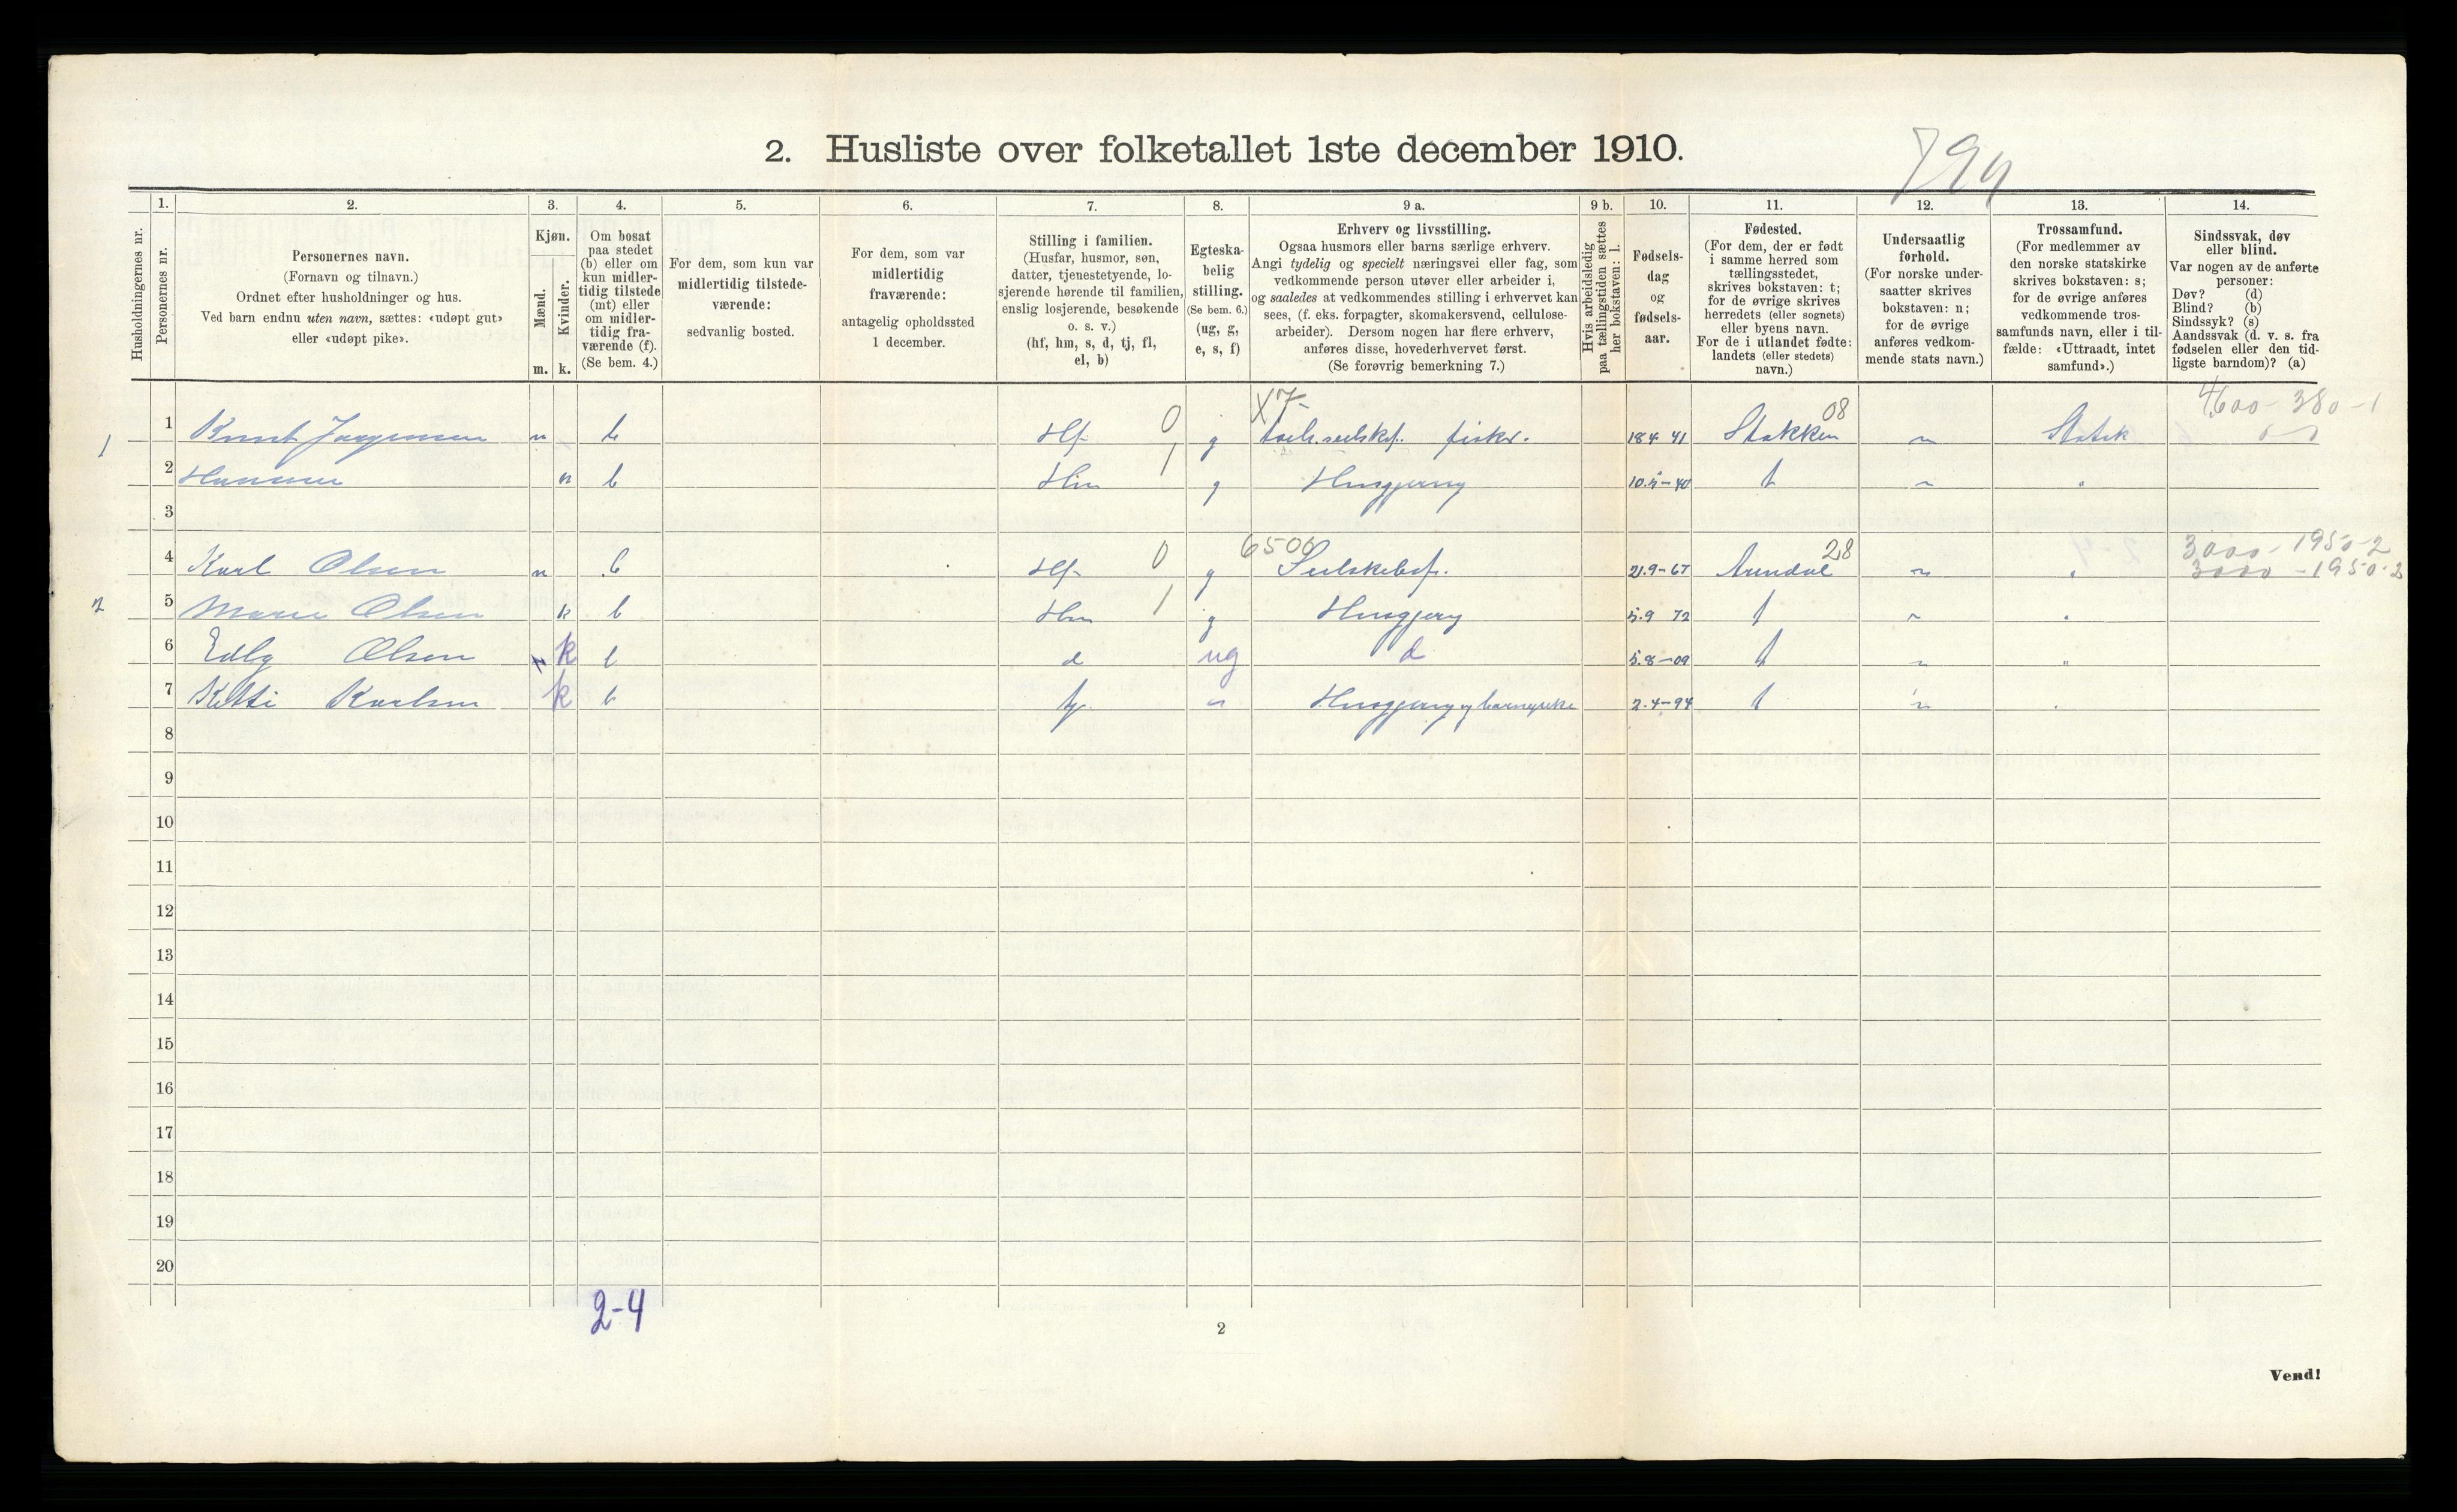 2. Husliste over folketallet 1ste december 1910.
1. 2. 3. 4. 5. 6. 7. 8. 9 a. 9 b. 10. 11. 12. 13. 14.
Husholdningernes nr.
Personernes nr.
Personernes navn.
(Fornavn og tilnavn.)
Ordnet efter husholdninger og hus.
Ved barn endnu uten navn, sættes: «udøpt gut»
eller «udøpt pike».
Kjøn.
Mænd.
Kvinder.
m. k.
Om bosat
paa stedet
(b) eller om
kun midler-
tidig tilstede
(mt) eller
om midler-
tidig fra-
værende (f).
(Se bem. 4.)
For dem, som kun var
midlertidig tilstede-
værende:
sedvanlig bosted.
For dem, som var
midlertidig
fraværende:
antagelig opholdssted
1 december.
Stilling i familien.
(Husfar, husmor, søn,
datter, tjenestetyende, lo-
sjerende hørende til familien,
enslig losjerende, besøkende
o. s. v.)
(hf, hm, s, d, tj, fl,
el, b)
Egteska-
belig
stilling.
(Se bem. 6.)
(ug, g,
e, s, f)
Erhverv og livsstilling.
Ogsaa husmors eller barns særlige erhverv.
Angi tydelig og specielt næringsvei eller fag, som
vedkommende person utøver eller arbeider i,
og saaledes at vedkommendes stilling i erhvervet kan
sees, (f. eks. forpagter, skomakersvend, cellulose-
arbeider). Dersom nogen har flere erhverv,
anføres disse, hovederhvervet først.
(Se forøvrig bemerkning 7.)
Hvis arbeidsledig
paa tællingstiden sættes
her bokstaven: l.
Fødsels-
dag
og
fødsels-
aar.
Fødested.
(For dem, der er født
i samme herred som
tællingsstedet,
skrives bokstaven: t;
for de øvrige skrives
herredets (eller sognets)
eller byens navn.
For de i utlandet fødte:
landets (eller stedets)
navn.)
Undersaatlig
forhold.
(For norske under-
saatter skrives
bokstaven: n;
for de øvrige
anføres vedkom-
mende stats navn.)
Trossamfund.
(For medlemmer av
den norske statskirke
skrives bokstaven: s;
for de øvrige anføres
vedkommende tros-
samfunds navn, eller i til-
fælde: «Uttraadt, intet
samfund».)
Sindssvak, døv
eller blind.
Var nogen av de anførte
personer:
Døv? (d)
Blind? (b)
Sindssyk? (s)
Aandssvak (d. v. s. fra
fødselen eller den tid-
ligste barndom)? (a)
4600 - 380 - 1
1 1 Knut Jorgensen b Hf 0 g fiskr. 18 4 41 Stokken 08 n Statsk
2 b Hm 1 g Husgjerning 40 t n "
3
3000 - 1950-2
4 Karl Olsen b Hf 0 g 6506 21.9-67 Arendal 28 n "
3000 - 1950-2
2 5 Marie Olsen k b Hm 1 g Husgjerg 5.9 72 t n "
6 Olsen k b d ug d 5.8-09 t n "
7 Kitti Karlsen k b tj n Husgjerning og 2.4-94 t n "
8
9
10
11
12
13
14
15
16
17
18
19
20
2-4
2
Vend!